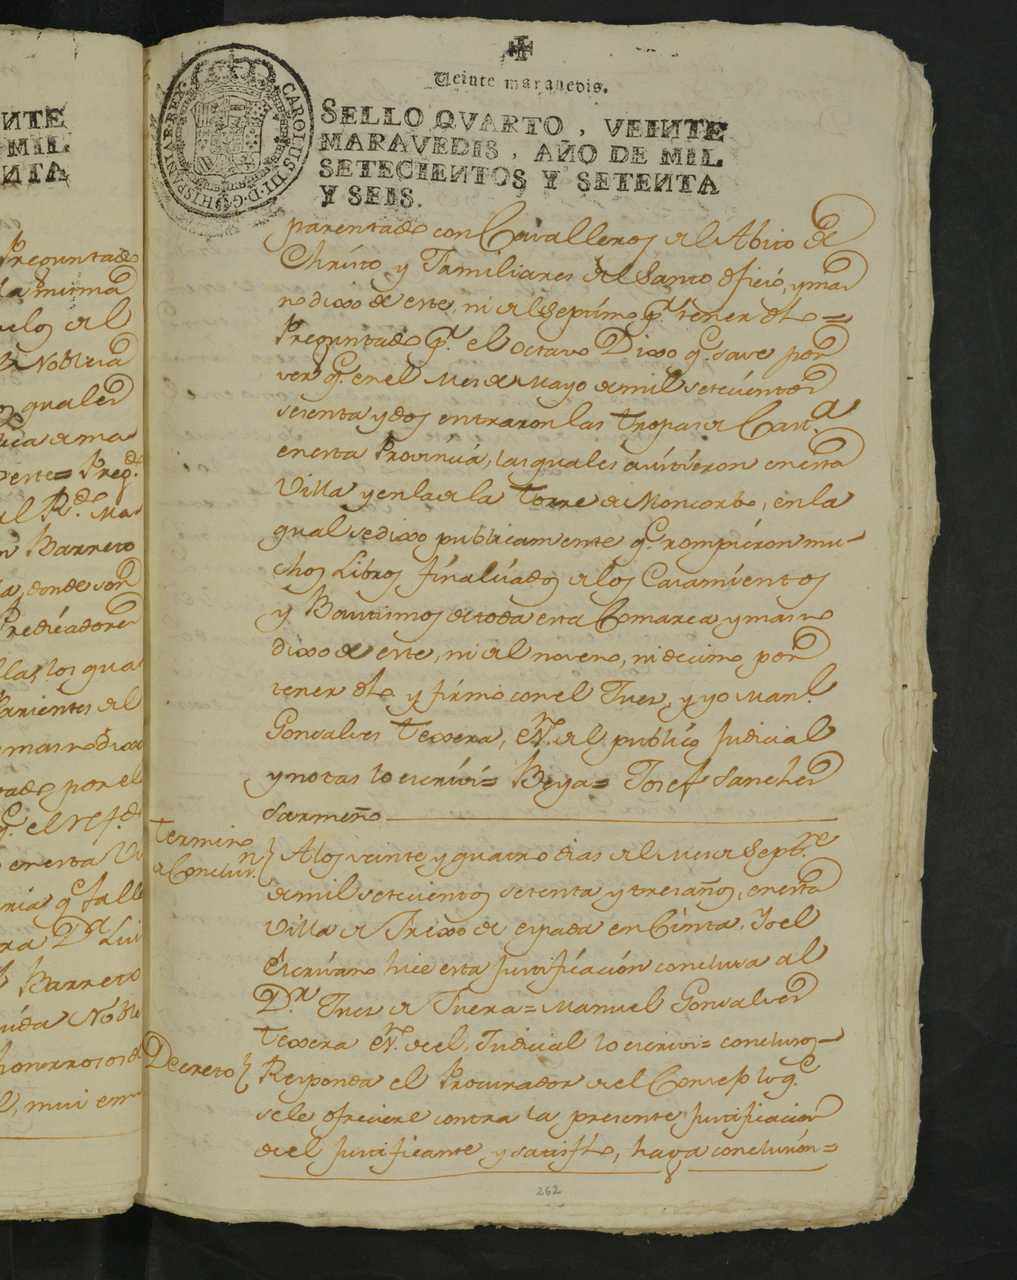 NTE
MIL
NTA
Preguntado
la misma
Nobleza
quales
este= Preg.do
Barreto
donde son
Predicadore
las los qua
Parientes del
mas no dixo
por el
en esta Vi
que falle
Dr. Luis
Barreto
Noble
honrrosos
mui em
CAROLUS III D. G. HISPANIAR. REX
Veinte maravedis.
SELLO QVARTO, VEINTE
MARAVEDIS, AÑO DE MIL
SETECIENTOS Y SETENTA
Y SEIS.
parentado con Cavalleros del Abito de
Christo y Familiares del Santo oficio, y mas
no dixo de este, ni del Septimo pr. tener dho=
Preguntado pr. el Octavo Dixo q. save por
ver q. en el Mes de Mayo de mil setecientos
sesenta y dos entraron las tropas de Cast.a
en esta Provincia, las quales asistieron en esta
Villa y en la de la Torre de Moncorbo, en la
qual se dixo publicamente q. rompieron mu-
chos Libros finalizados de los Casamientos
y Bautismos de toda esta Comarca y mas no
dixo de este, ni del noveno, ni decimo por
tener dho y firmo con el Juez, y yo Man.l
Gonsalves Texera, EN. del publico Judicial
y notas lo escrivi= Beya= Josef Sanches
Sarmeño
Termino
de Conclus.n
A los veinte y quatro dias del mes de Sept.re
de mil setecientos setenta y tres años, en esta
Villa de Freixo de espada en Cinta, Yo el
Escrivano hice esta justificacion conclusa al
Dr. Juez de Fuera= Manuel Gonsalves
Texera EN. del Judicial lo escrivi= conclusos=
Decreto
Responda el Procurador del Consejo lo q.
se le ofreciere contra la presente justificacion
del justificante y satisfho, haya conclusion=
262